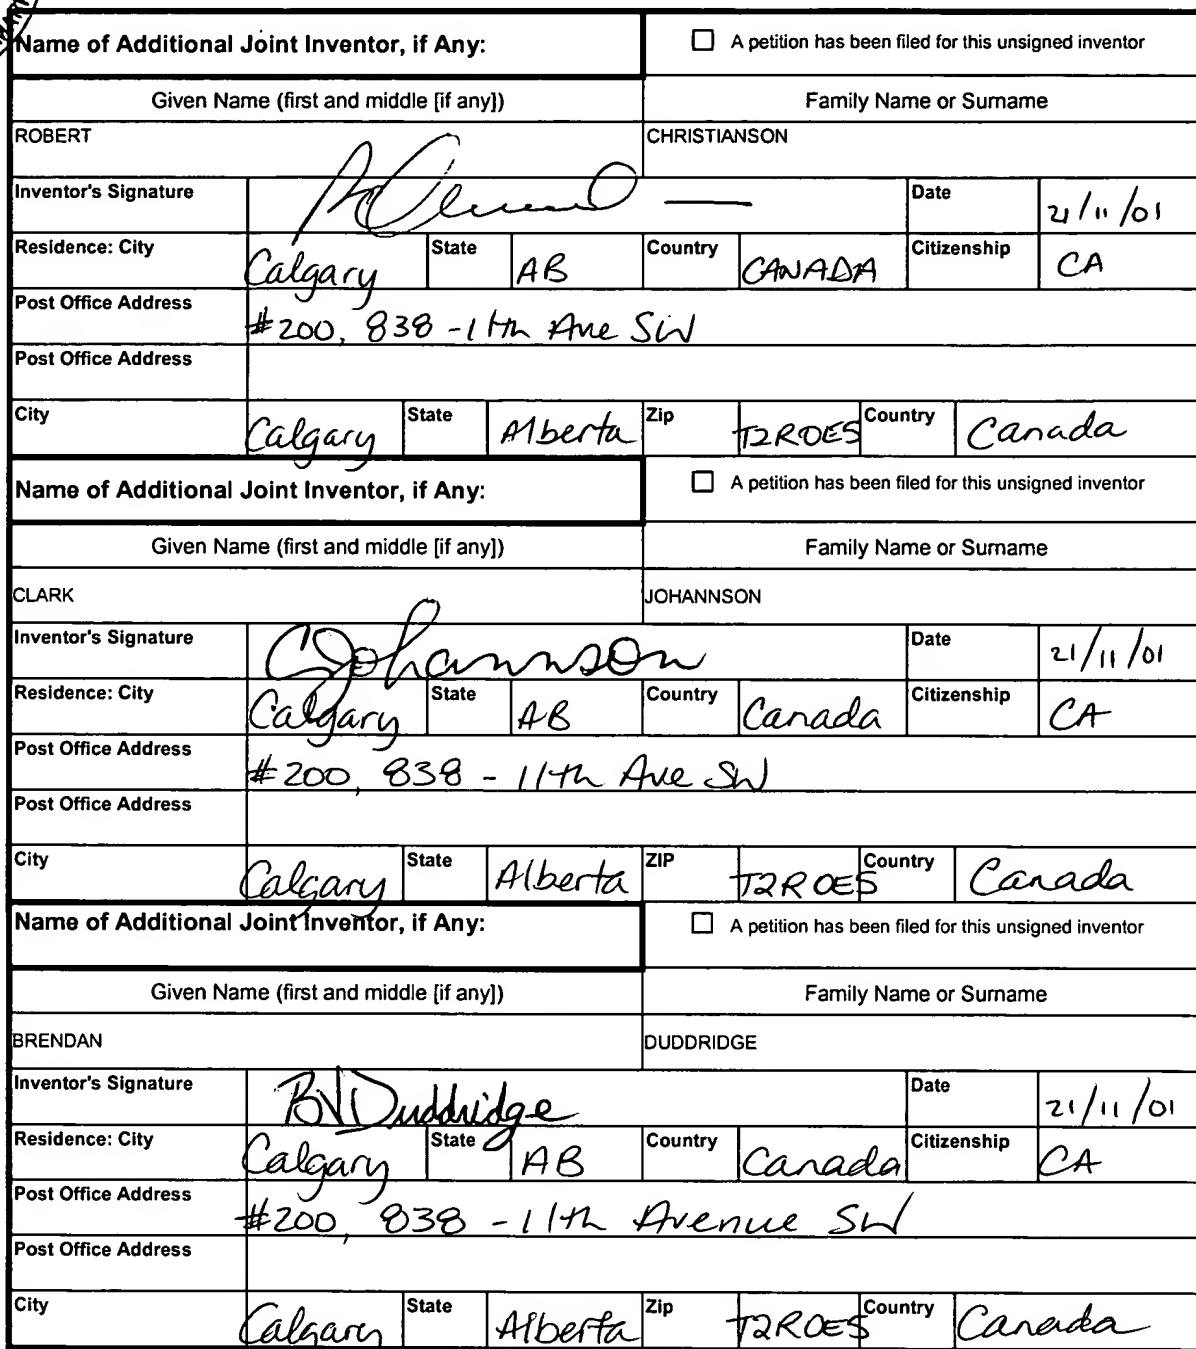 Name of Additional Joint Inventor, if Any: ☐ A petition has been filed for this unsigned inventor
Given Name (first and middle [if any]) Family Name or Surname
ROBERT CHRISTIANSON
Inventor's Signature Date 21/11/01
Residence: City Calgary State AB Country CANADA Citizenship CA
Post Office Address #200, 838 - 11th Ave SW
Post Office Address
City Calgary State Alberta Zip T2R0E5 Country Canada
Name of Additional Joint Inventor, if Any: ☐ A petition has been filed for this unsigned inventor
Given Name (first and middle [if any]) Family Name or Surname
CLARK JOHANNSON
Inventor's Signature CJohannson Date 21/11/01
Residence: City Calgary State AB Country Canada Citizenship CA
Post Office Address #200, 838 - 11th Ave SW
Post Office Address
City Calgary State Alberta ZIP T2R 0E5 Country Canada
Name of Additional Joint Inventor, if Any: ☐ A petition has been filed for this unsigned inventor
Given Name (first and middle [if any]) Family Name or Surname
BRENDAN DUDDRIDGE
Inventor's Signature BVDuddridge Date 21/11/01
Residence: City Calgary State AB Country Canada Citizenship CA
Post Office Address #200, 838 - 11th Avenue SW
Post Office Address
City Calgary State Alberta Zip T2R0E5 Country Canada